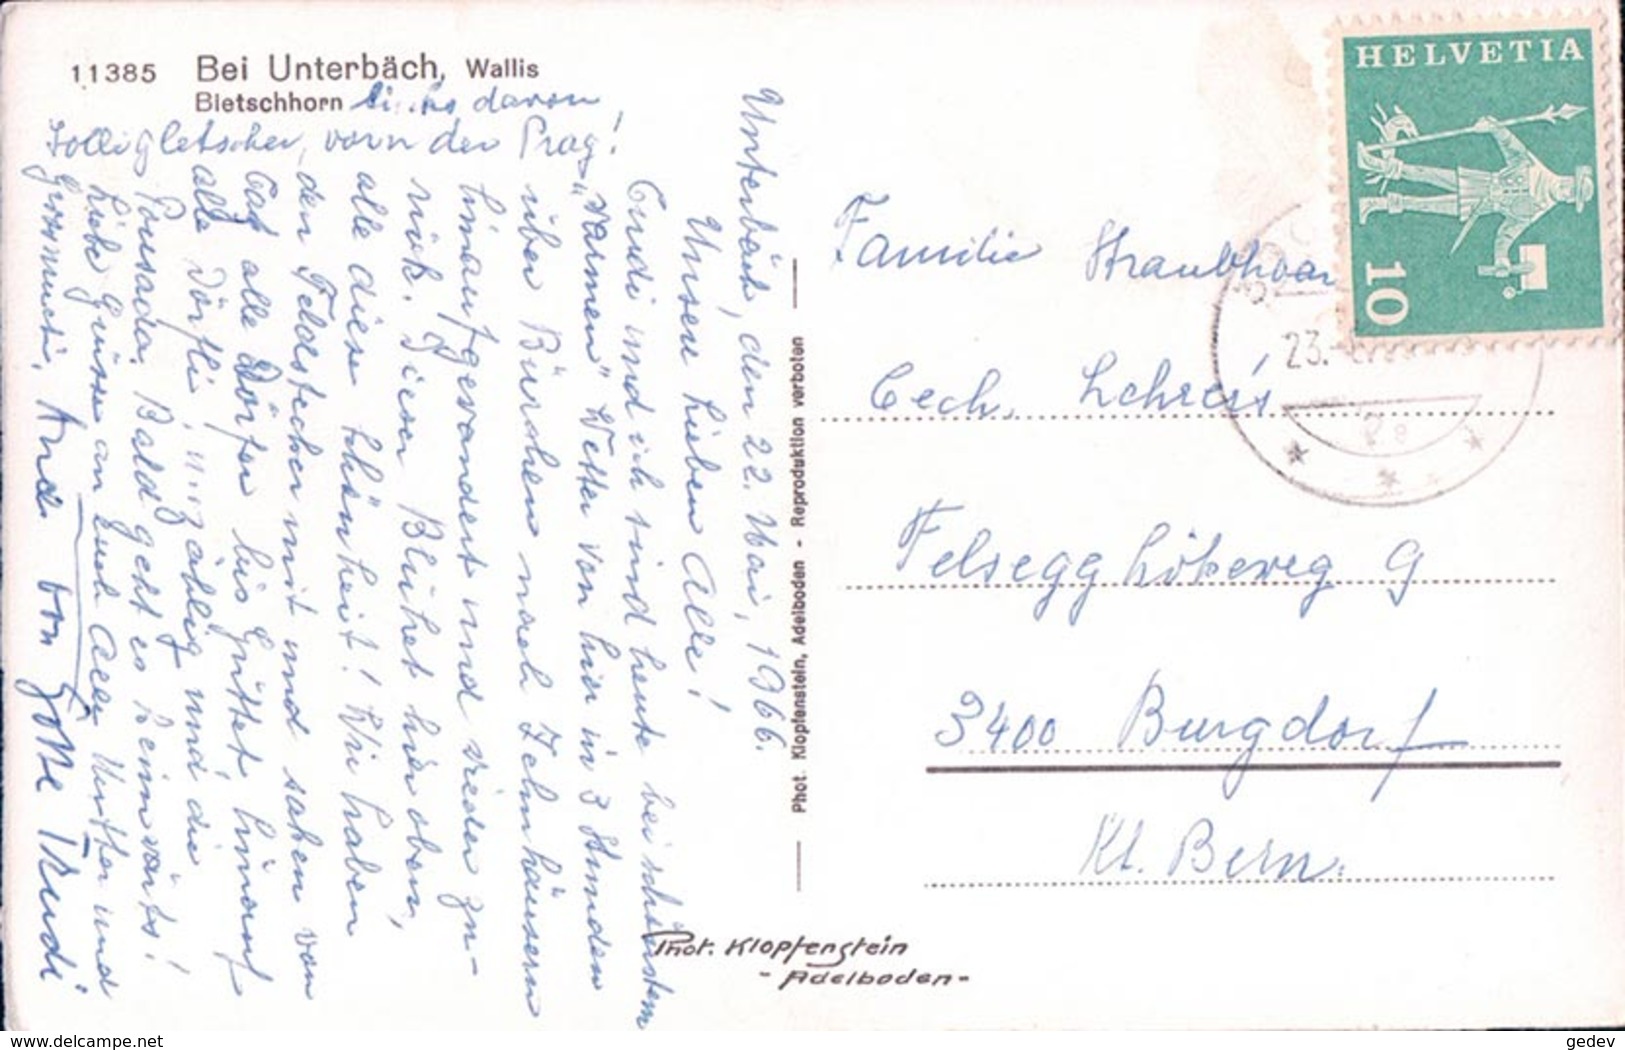 11385 Bei Unterbäch, Wallis
Bietschhorn links davon
gletscher, vorn der Prag!
Unterbäch, den 22. Mai, 1966.
Unsere lieben Alle!
Trudi und ich sind heute bei schönstem
"warmen" Wetter von hier in 3 Stunden
über Bürchen nach Zehnhäusern
hinauf gewandert und wieder zu-
rück. Dieser Blühet hier oben,
alle diese Schönheit! Wir haben
den Feldstecher mit und sahen von
alle Dörfer bis hinauf
alle Dörfli, unzählig und die
Bald geht es heimwärts!
Liebe Grüsse an Euch Alle Mutter und
Grossmueti. Und von Gotte Trudi
Phot. Klopfenstein, Adelboden - Reproduktion verboten
Phot. Klopfenstein
- Adelboden -
HELVETIA
10
23.
Familie Straubhaar
Cech. Lehrers
Felsegg 9
3400 Burgdorf
Kt. Bern.
gedev
www.delcampe.net